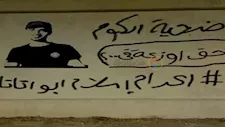 ضحية الكوم
حق اوزي في...
# اعدام إسلام ابو اتاتا